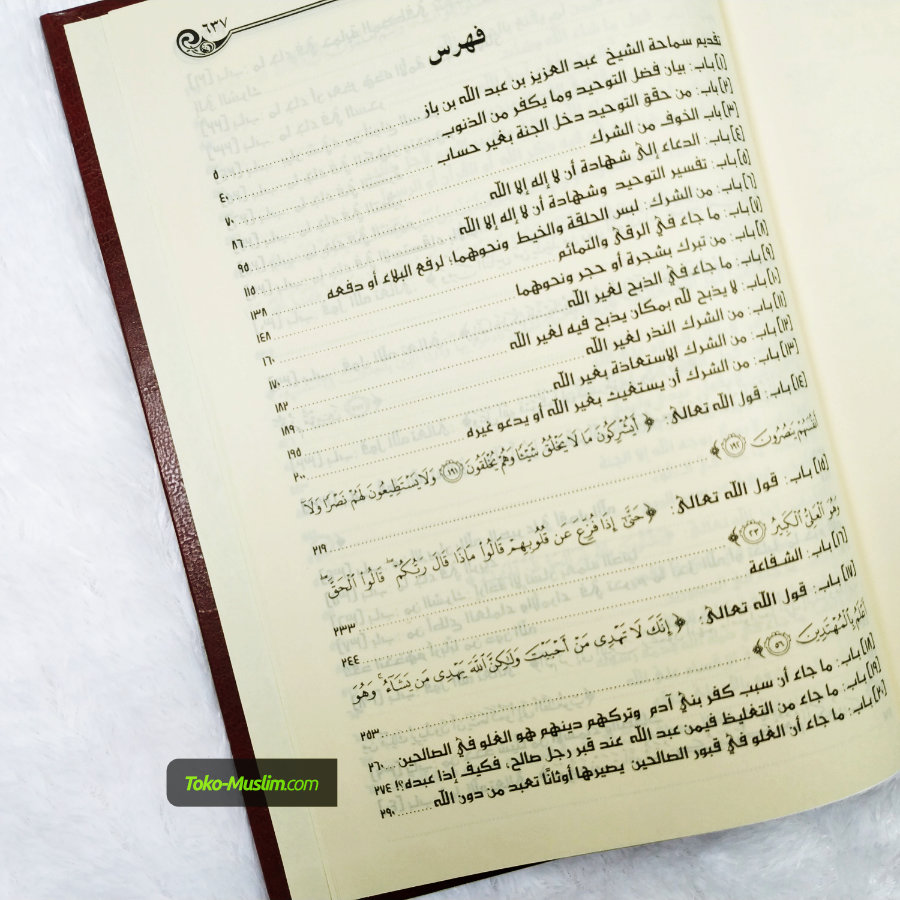 ٦٣٧
فهرس
تقديم سماحة الشيخ عبد العزيز بن عبد الله بن باز ٥
[١] باب: بيان فضل التوحيد وما يكفر من الذنوب ٤٠
[٢] باب: من حقق التوحيد دخل الجنة بغير حساب ٧٠
[٣] باب الخوف من الشرك ٨٦
[٤] باب: الدعاء إلى شهادة أن لا إله إلا الله ٩٥
[٥] باب: تفسير التوحيد وشهادة أن لا إله إلا الله ١١٥
[٦] باب: من الشرك: لبس الحلقة والخيط ونحوهما، لرفع البلاء أو دفعه ١٣٨
[٧] باب: ما جاء في الرقى والتمائم ١٤٨
[٨] باب: من تبرك بشجرة أو حجر ونحوهما ١٦٠
[٩] باب: ما جاء في الذبح لغير الله ١٧٠
[١٠] باب: لا يذبح لله بمكان يذبح فيه لغير الله ١٨٢
[١١] باب: من الشرك النذر لغير الله ١٨٩
[١٢] باب: من الشرك الاستعاذة بغير الله ١٩٥
[١٣] باب: من الشرك أن يستغيث بغير الله أو يدعو غيره ٢٠٠
[١٤] باب: قول الله تعالى: ﴿ أَيُشْرِكُونَ مَا لَا يَخْلُقُ شَيْئًا وَهُمْ يُخْلَقُونَ ۝١٩١ وَلَا يَسْتَطِيعُونَ لَهُمْ نَصْرًا وَلَا
أَنْفُسَهُمْ يَنْصُرُونَ ۝١٩٢ ﴾ ٢١٩
[١٥] باب: قول الله تعالى: ﴿ حَتَّىٰ إِذَا فُزِّعَ عَنْ قُلُوبِهِمْ قَالُوا مَاذَا قَالَ رَبُّكُمْ ۖ قَالُوا الْحَقَّ ۖ
وَهُوَ الْعَلِيُّ الْكَبِيرُ ۝٢٣ ﴾ ٢٣٣
[١٦] باب: الشفاعة ٢٤٤
[١٧] باب: قول الله تعالى: ﴿ إِنَّكَ لَا تَهْدِي مَنْ أَحْبَبْتَ وَلَٰكِنَّ اللَّهَ يَهْدِي مَنْ يَشَاءُ ۚ وَهُوَ
أَعْلَمُ بِالْمُهْتَدِينَ ۝٥٦ ﴾ ٢٥٣
[١٨] باب: ما جاء أن سبب كفر بني آدم وتركهم دينهم هو الغلو في الصالحين ٢٦٠
[١٩] باب: ما جاء من التغليظ فيمن عبد الله عند قبر رجل صالح، فكيف إذا عبده؟! ٢٧٤
[٢٠] باب: ما جاء أن الغلو في قبور الصالحين يصيرها أوثانًا تعبد من دون الله ٢٩٠
Toko-Muslim.com